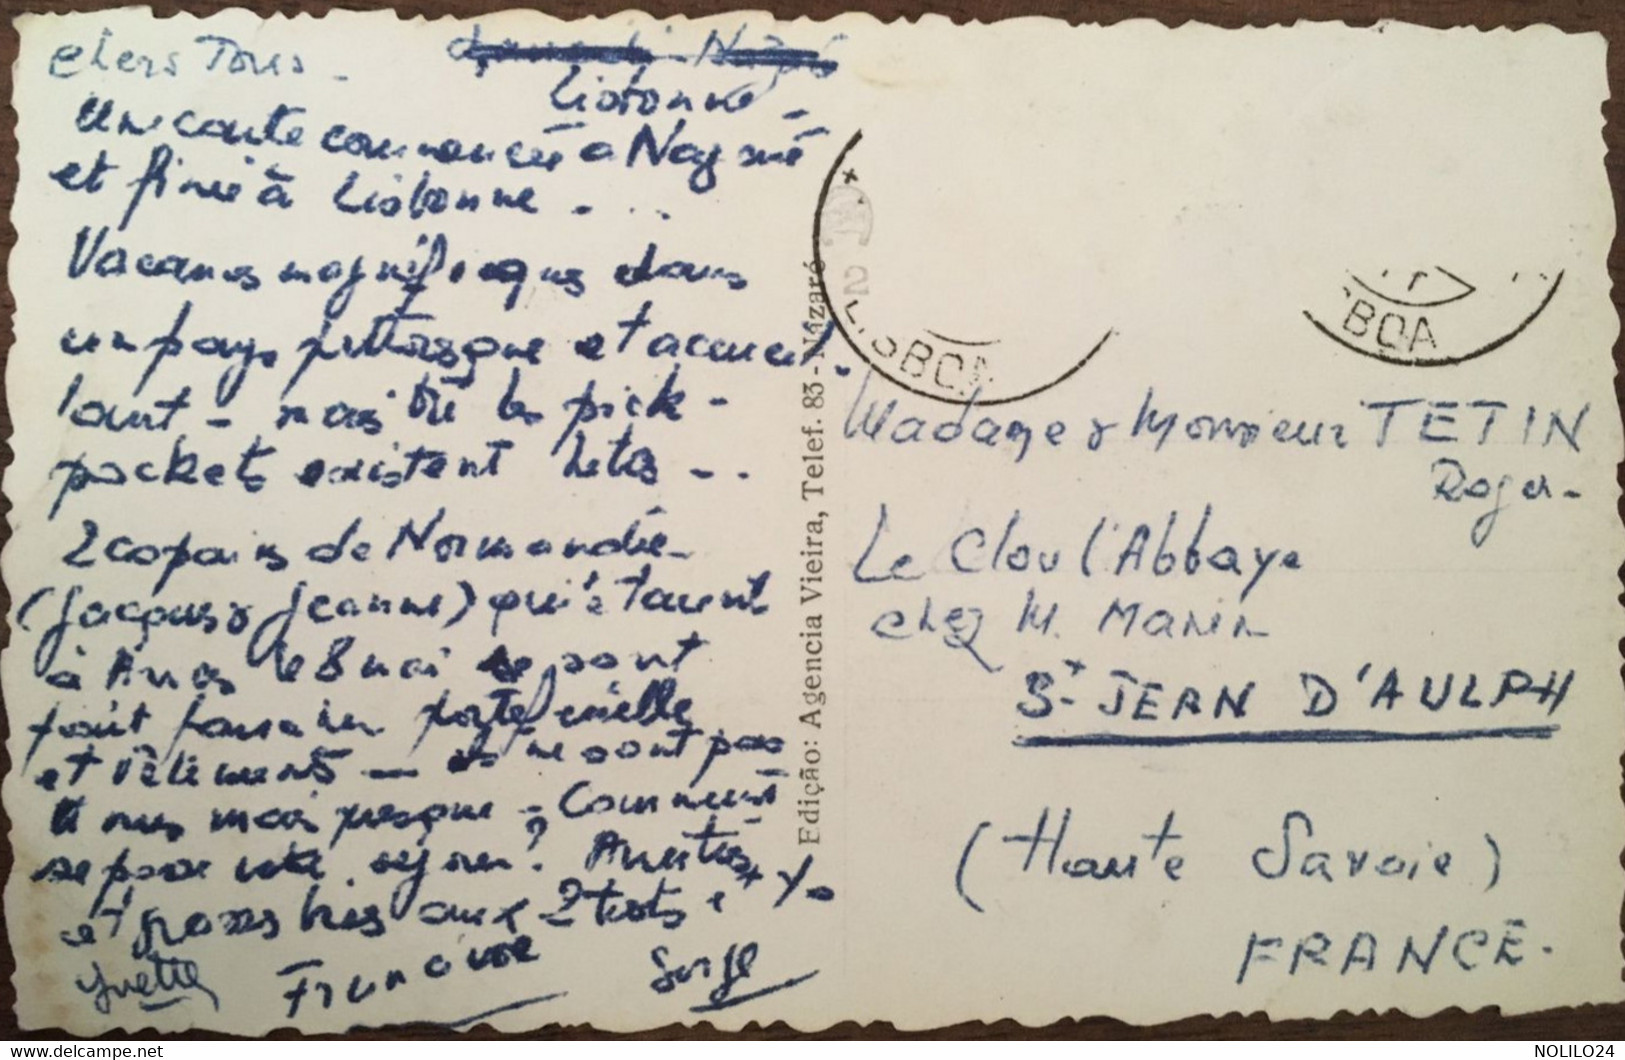 Chers Tous -
Lisbonne -
Une carte commencée a Nazaré
et finie à Lisbonne - ...
Vacances magnifiques dans
un pays pittoresque et accueil-
lant - mais les pick-
pockets existent hélas - ..
2 copains de Normandie -
(Jacques & Jeanne) qui étaient
à le 8 mai se sont
fait portefeuille
et vêtements - ils ne sont pas
nus mais presque - Comment
se passe votre séjour? Amitiés
et grosses bises aux 2
Yvette Françoise Serge
Edição: Agencia Vieira, Telef. 83 - Nazaré
LISBOA
SBOA
Madame & Monsieur TETIN
Roger -
Le Clou l'Abbaye
chez M. Marin
St JEAN D'AULPH
(Haute Savoie)
FRANCE -
NOLILO24